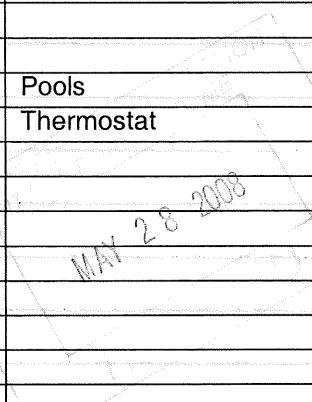 Pools
Thermostat
MAY 28 2008